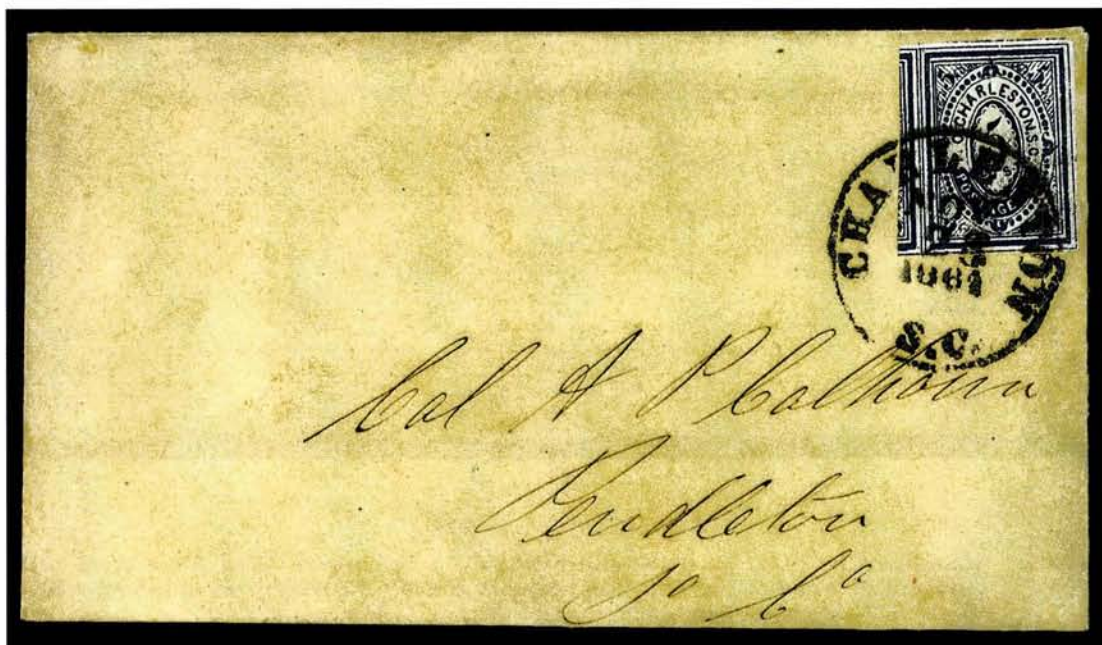 CHARLESTON. S.C.
POSTAGE
CHARLESTON
1861
S.C.
Col A P Calhoun
Pendleton
So Ca